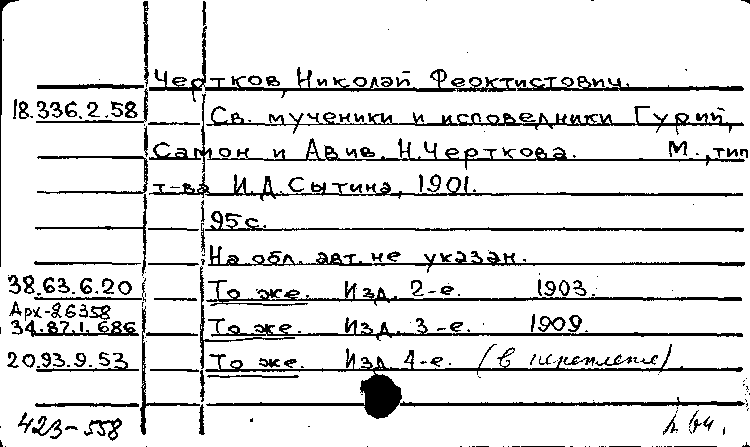 Чертков, Николай Феоктистович.
18.336.2.58 Св. мученики и исповедники Гурий,
Самон и Авив. Н. Черткова. М., тип
т-ва И.Д. Сытина, 1901.
95 с.
На обл. авт. не указан.
38.63.6.20 То же. Изд. 2-е. 1903.
Арх-26358
34.87.1.686 То же. Изд. 3-е. 1909.
20.93.9.53 То же. Изд 4-е. (в переплете).
423-558